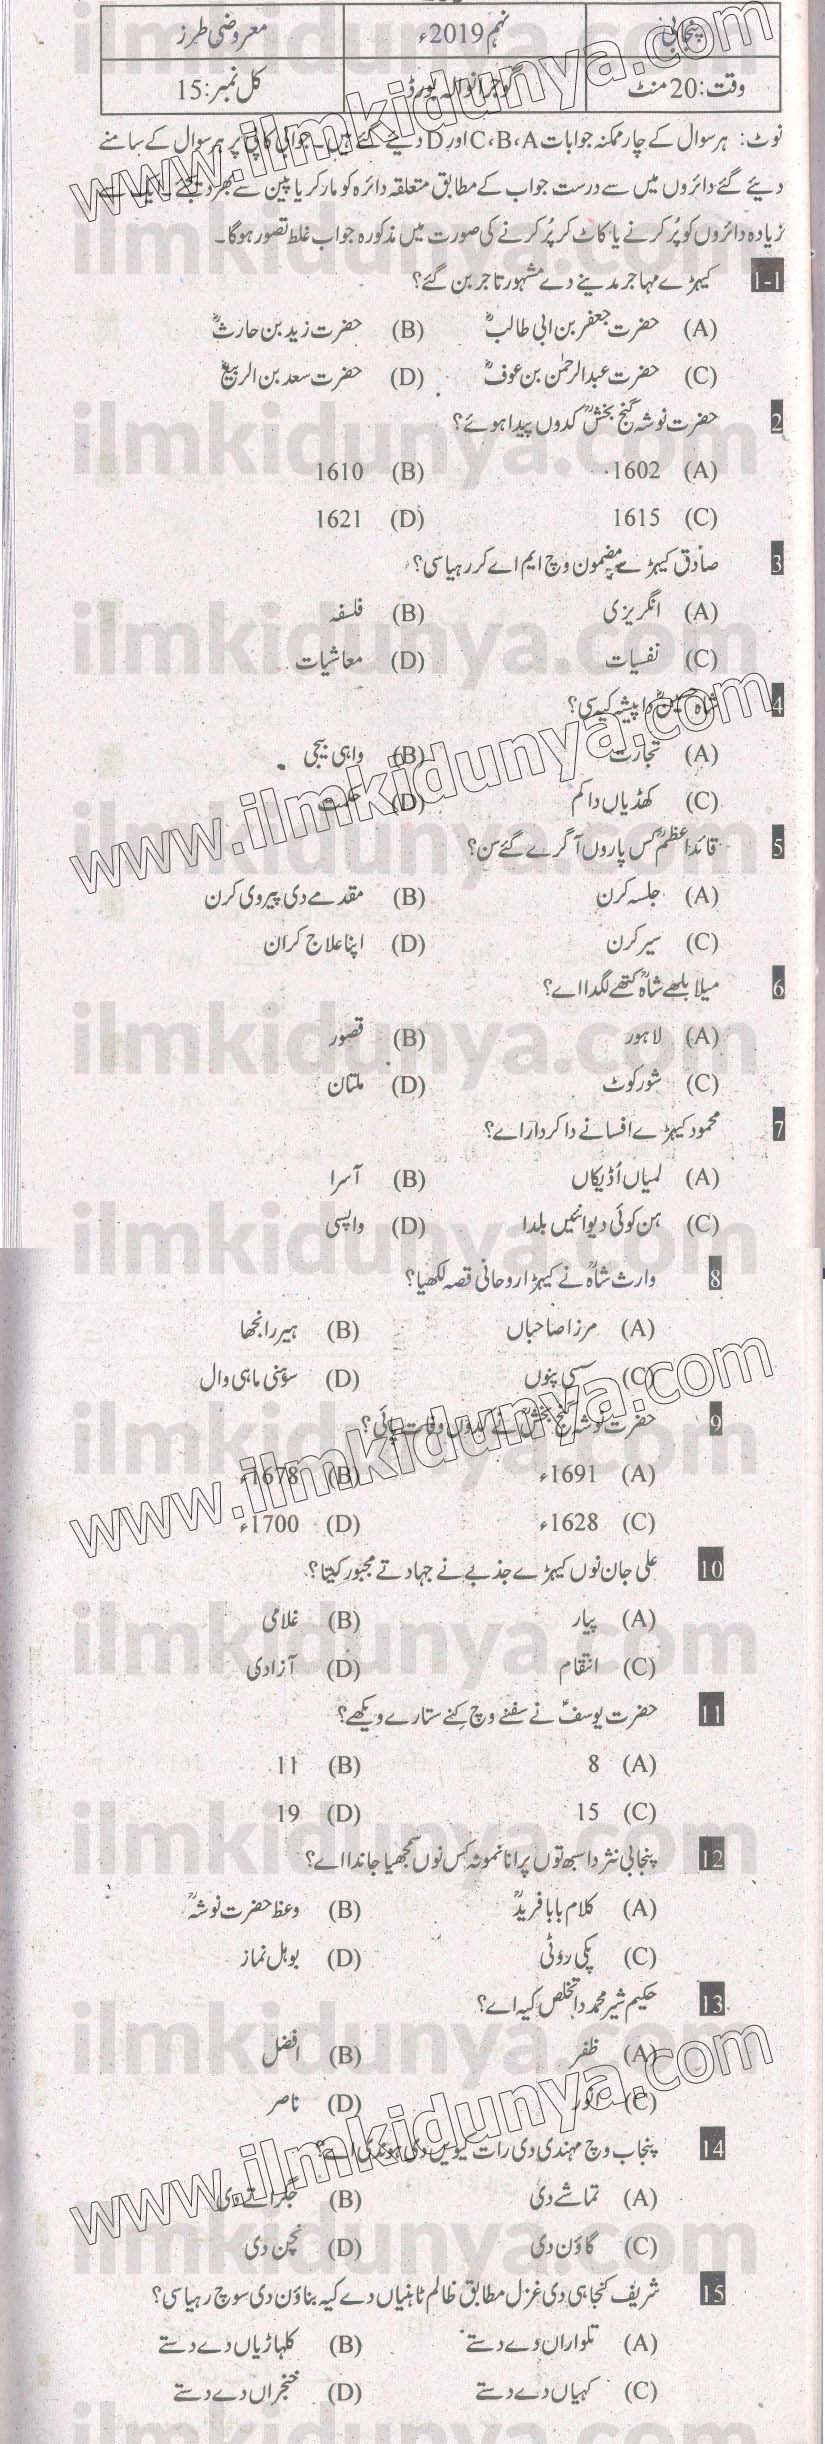 پنجابی نہم 2019ء معروضی طرز
وقت: 20 منٹ گوجرانوالہ بورڈ کل نمبر: 15
نوٹ: ہر سوال کے چار ممکنہ جوابات C، B، A اور D دیئے گئے ہیں۔ جوابی کاپی پر ہر سوال کے سامنے
دیئے گئے دائروں میں سے درست جواب کے مطابق متعلقہ دائرہ کو مارکر یا پین سے بھر دیجئے ایک سے
زیادہ دائروں کو پُر کرنے یا کاٹ کر پُر کرنے کی صورت میں مذکورہ جواب غلط تصور ہوگا۔
1-1 کیہڑے مہاجر مدینے دے مشہور تاجر بن گئے؟
(A) حضرت جعفر بن ابی طالبؓ (B) حضرت زید بن حارثؓ
(C) حضرت عبدالرحمٰن بن عوفؓ (D) حضرت سعد بن الربیعؓ
2 حضرت نوشہ گنج بخشؒ کدوں پیدا ہوئے؟
(A) 1602 (B) 1610
(C) 1615 (D) 1621
3 صادق کیہڑے مضمون وچ ایم اے کر رہیا سی؟
(A) انگریزی (B) فلسفہ
(C) نفسیات (D) معاشیات
4 شاہ حسینؒ دا پیشہ کیہ سی؟
(A) تجارت (B) واہی بیجی
(C) کھڈیاں دا کم (D) حکمت
5 قائداعظمؒ کس پاروں آگرے گئے سن؟
(A) جلسہ کرن (B) مقدمے دی پیروی کرن
(C) سیر کرن (D) اپنا علاج کران
6 میلا بلھے شاہؒ کتھے لگدا اے؟
(A) لاہور (B) قصور
(C) شورکوٹ (D) ملتان
7 محمود کیہڑے افسانے دا کردار اے؟
(A) لمیاں اُڈیکاں (B) آسرا
(C) ہن کوئی دیوا نئیں بلدا (D) واپسی
8 وارث شاہؒ نے کیہڑا روحانی قصہ لکھیا؟
(A) مرزا صاحباں (B) ہیر رانجھا
(C) سسی پنوں (D) سوہنی ماہی وال
9 حضرت نوشہ گنج بخشؒ نے کدوں وفات پائی؟
(A) 1691ء (B) 1678ء
(C) 1628ء (D) 1700ء
10 علی جان نوں کیہڑے جذبے نے جہاد تے مجبور کیتا؟
(A) پیار (B) غلامی
(C) انتقام (D) آزادی
11 حضرت یوسفؑ نے سفنے وچ کِنے ستارے ویکھے؟
(A) 8 (B) 11
(C) 15 (D) 19
12 پنجابی نثر دا سبھ توں پرانا نمونہ کس نوں سمجھیا جاندا اے؟
(A) کلام بابا فریدؒ (B) وعظ حضرت نوشہؒ
(C) پکی روٹی (D) بوہل نماز
13 حکیم شیر محمد دا تخلص کیہ اے؟
(A) ظفر (B) افضل
(C) انور (D) ناصر
14 پنجاب وچ مہندی دی رات کیویں دی ہوندی اے؟
(A) تماشے دی (B) جگراتے دی
(C) گاؤن دی (D) نچن دی
15 شریف کنجاہی دی غزل مطابق ظالم ٹاہنیاں دے کیہ بناؤن دی سوچ رہیا سی؟
(A) تلواراں دے دستے (B) کلہاڑیاں دے دستے
(C) کہیاں دے دستے (D) خنجراں دے دستے
ilmkidunya.com
www.ilmkidunya.com